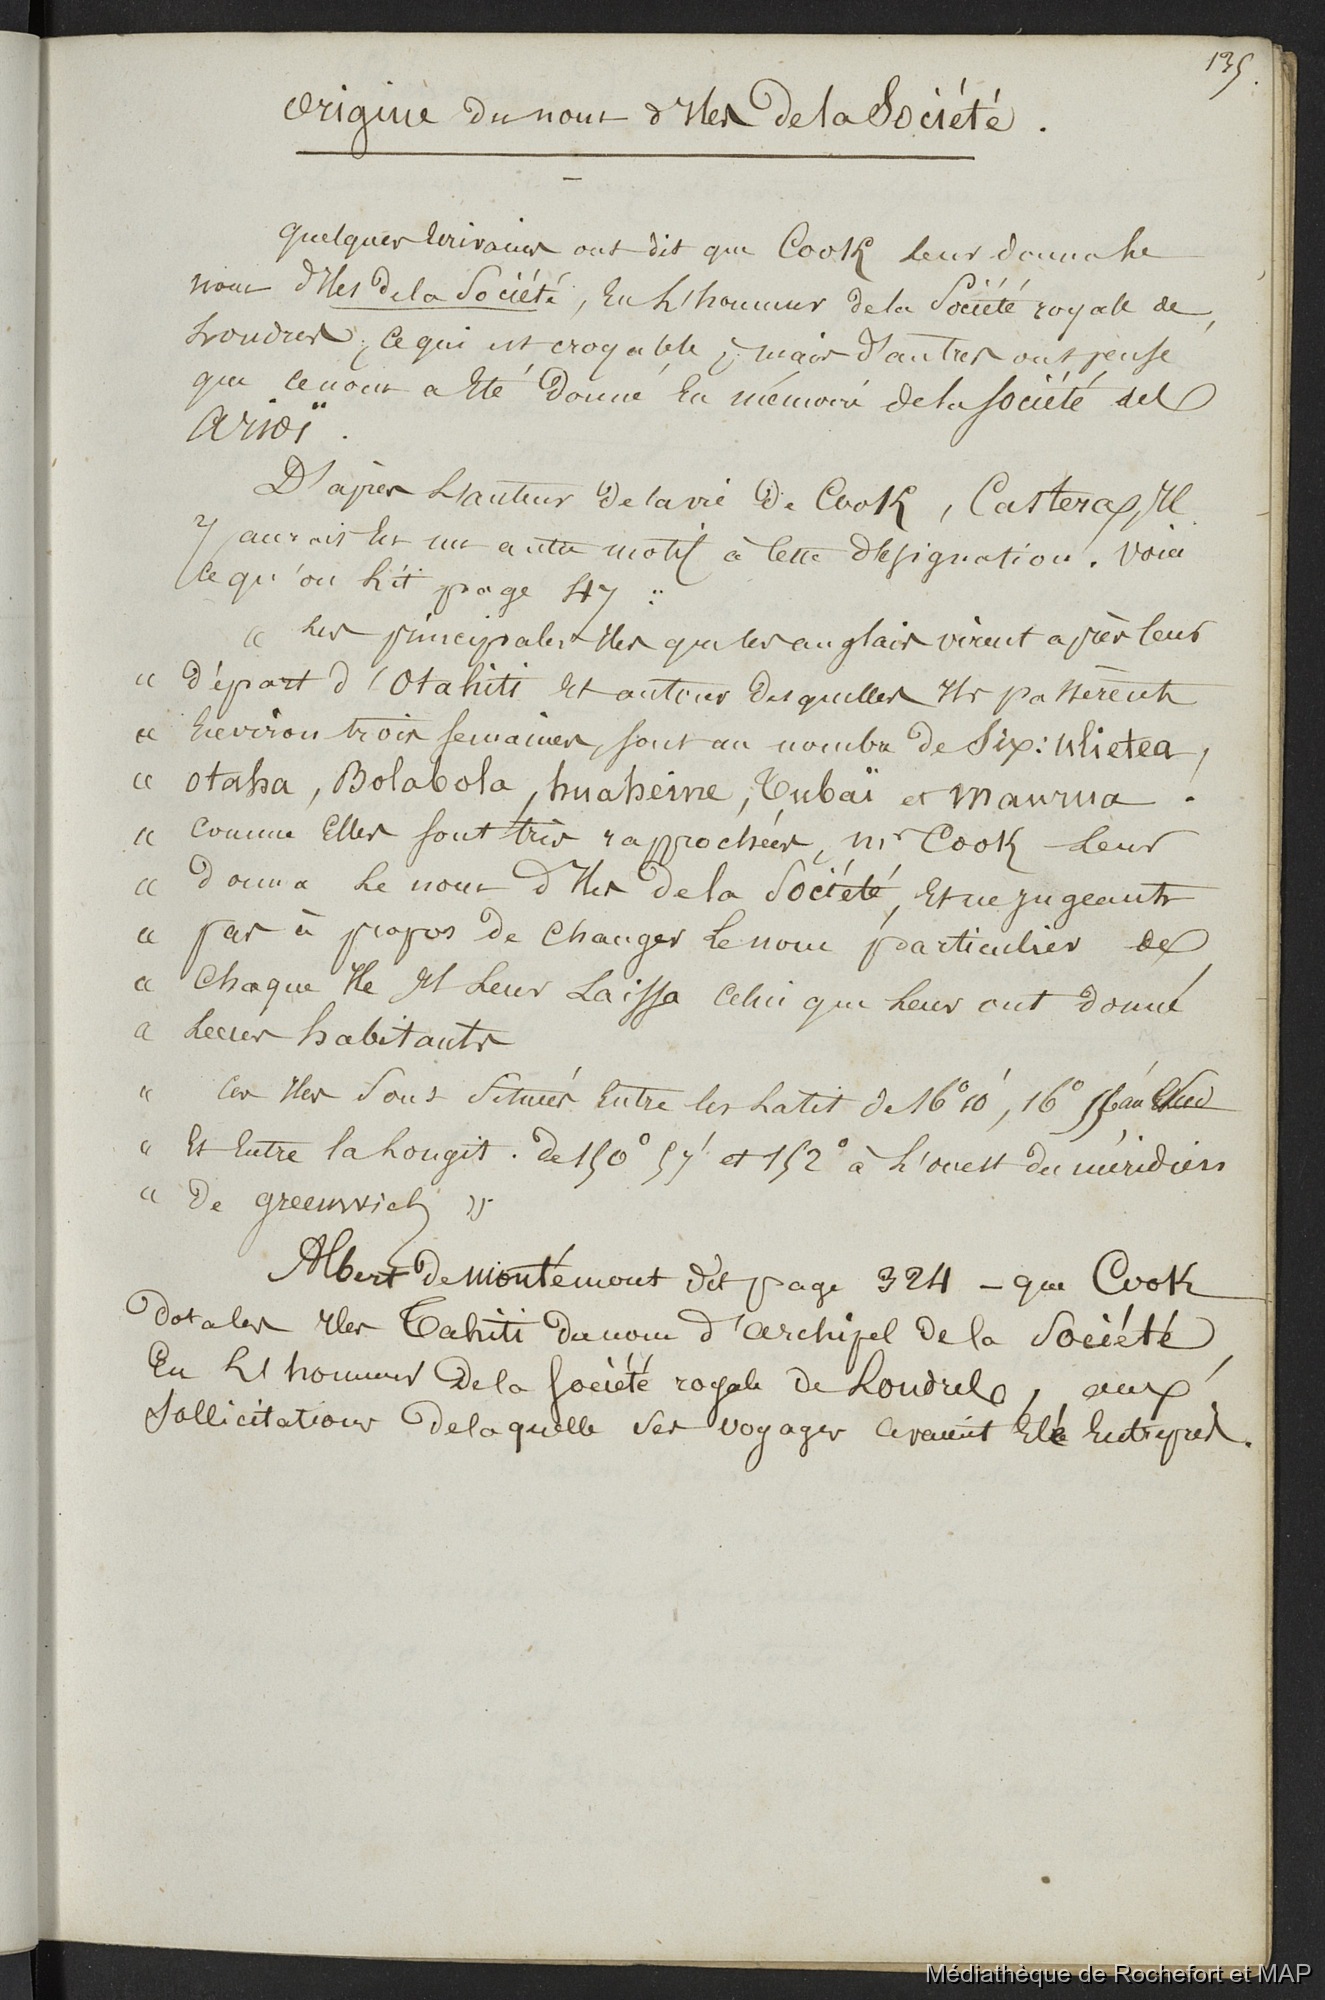 135.
Origine du nom d'Iles De la Société.
quelques Ecrivains ont dit que Cook leur donna le
nom d'Iles De la Société, En L'honneur de la Société royale de
Londres, ce qui est croyable ; mais d'autres ont pensé
que ce nom a Eté Donné En mémoire de la société des
Arioï.
D'après L'auteur De la vie De Cook, Castera, Il
y aurait Eu un autre motif à Cette désignation. Voici
ce qu'on Lit page 47 :
" Les principales Iles que les anglais virent après leur
" Départ d'Otahiti Et autour Desquelles Ils passèrent
" Environ trois semaines, sont au nombre De Six : Ulietea,
" Otaha, Bolabola, huaheine, Tubaï et Maurua.
" Comme Elles sont très rapprochées, mr Cook Leur
" Donna Le nom d'Iles De la Société, Et ne jugeant
" pas à propos De Changer Le nom particulier de
" Chaque Ile Il Leur Laissa Celui que Leur ont Donné
" Leurs habitants
" Ces Iles Sont Situées Entre les Latit de 16° 10', 16° au Sud
" Et Entre la Longit. De 150° 57' et 152° à L'ouest du méridien
" De greenwich "
Albert De Montémont dit page 324 - que Cook
Dota les Iles Tahiti Du nom d'Archipel De la Société
En L'honneur De la Société royale de Londres, aux
Sollicitations De laquelle ses voyages avaient Eté Entrepris.
Médiathèque de Rochefort et MAP